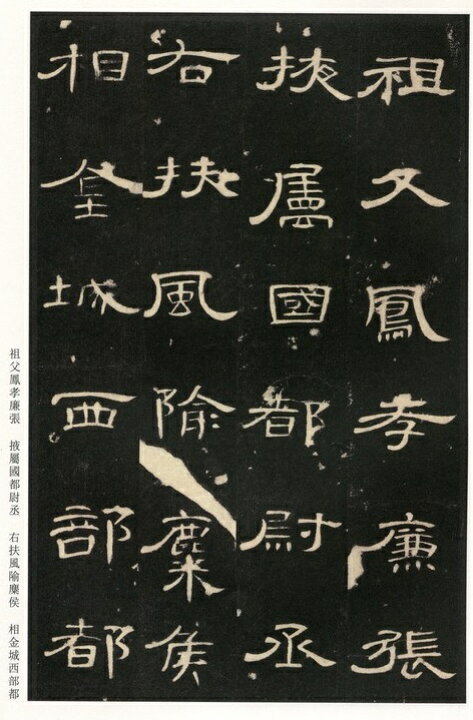 祖父鳳孝廉張
掖屬國都尉丞
右扶風隃麋侯
相金城西部都
祖父鳳孝廉張　掖屬國都尉丞　右扶風隃麋侯　相金城西部都